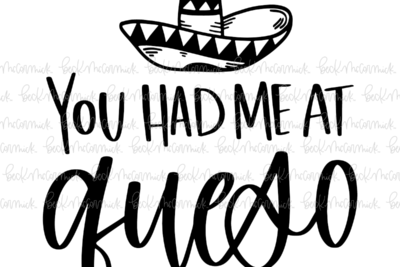 YOU HAD ME AT
queso